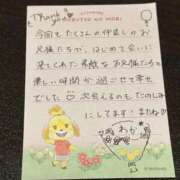 Thank you
今もたくさんの仲良しのお
兄様たちや、はじめて会いに
来てくれた素敵なお兄様たちと
楽しい時間が過ごせて幸せ
でした♡ 次会えるのもたのしみ
にしてます！またね♡
わか